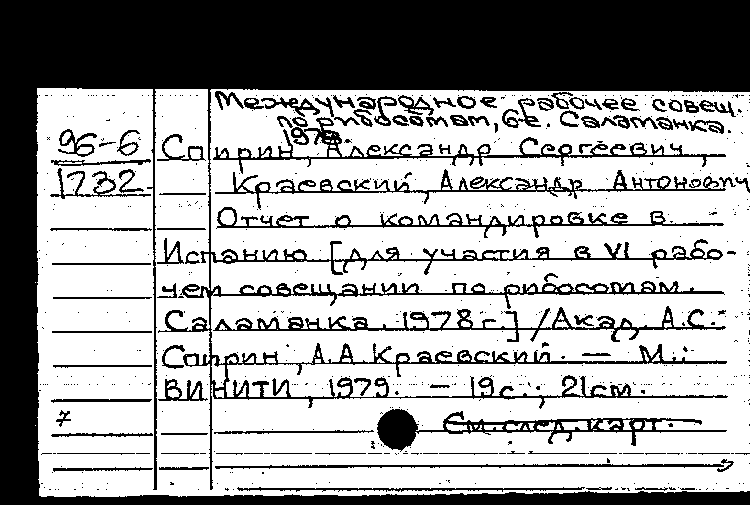 Международное рабочее совещ.
по рибосомам, 6-е. Саламанка.
1978.
96-6 Спирин, Александр Сергеевич,
1732 Краевский, Александр Антонович
Отчет о командировке в
Испанию [для участия в VI рабо-
чем совещании по рибосомам.
Саламанка. 1978 г.] / Акад. А.С.
Спирин, А.А. Краевский. — М.:
ВИНИТИ, 1979. — 19 с.; 21 см.
7 См. след. карт.